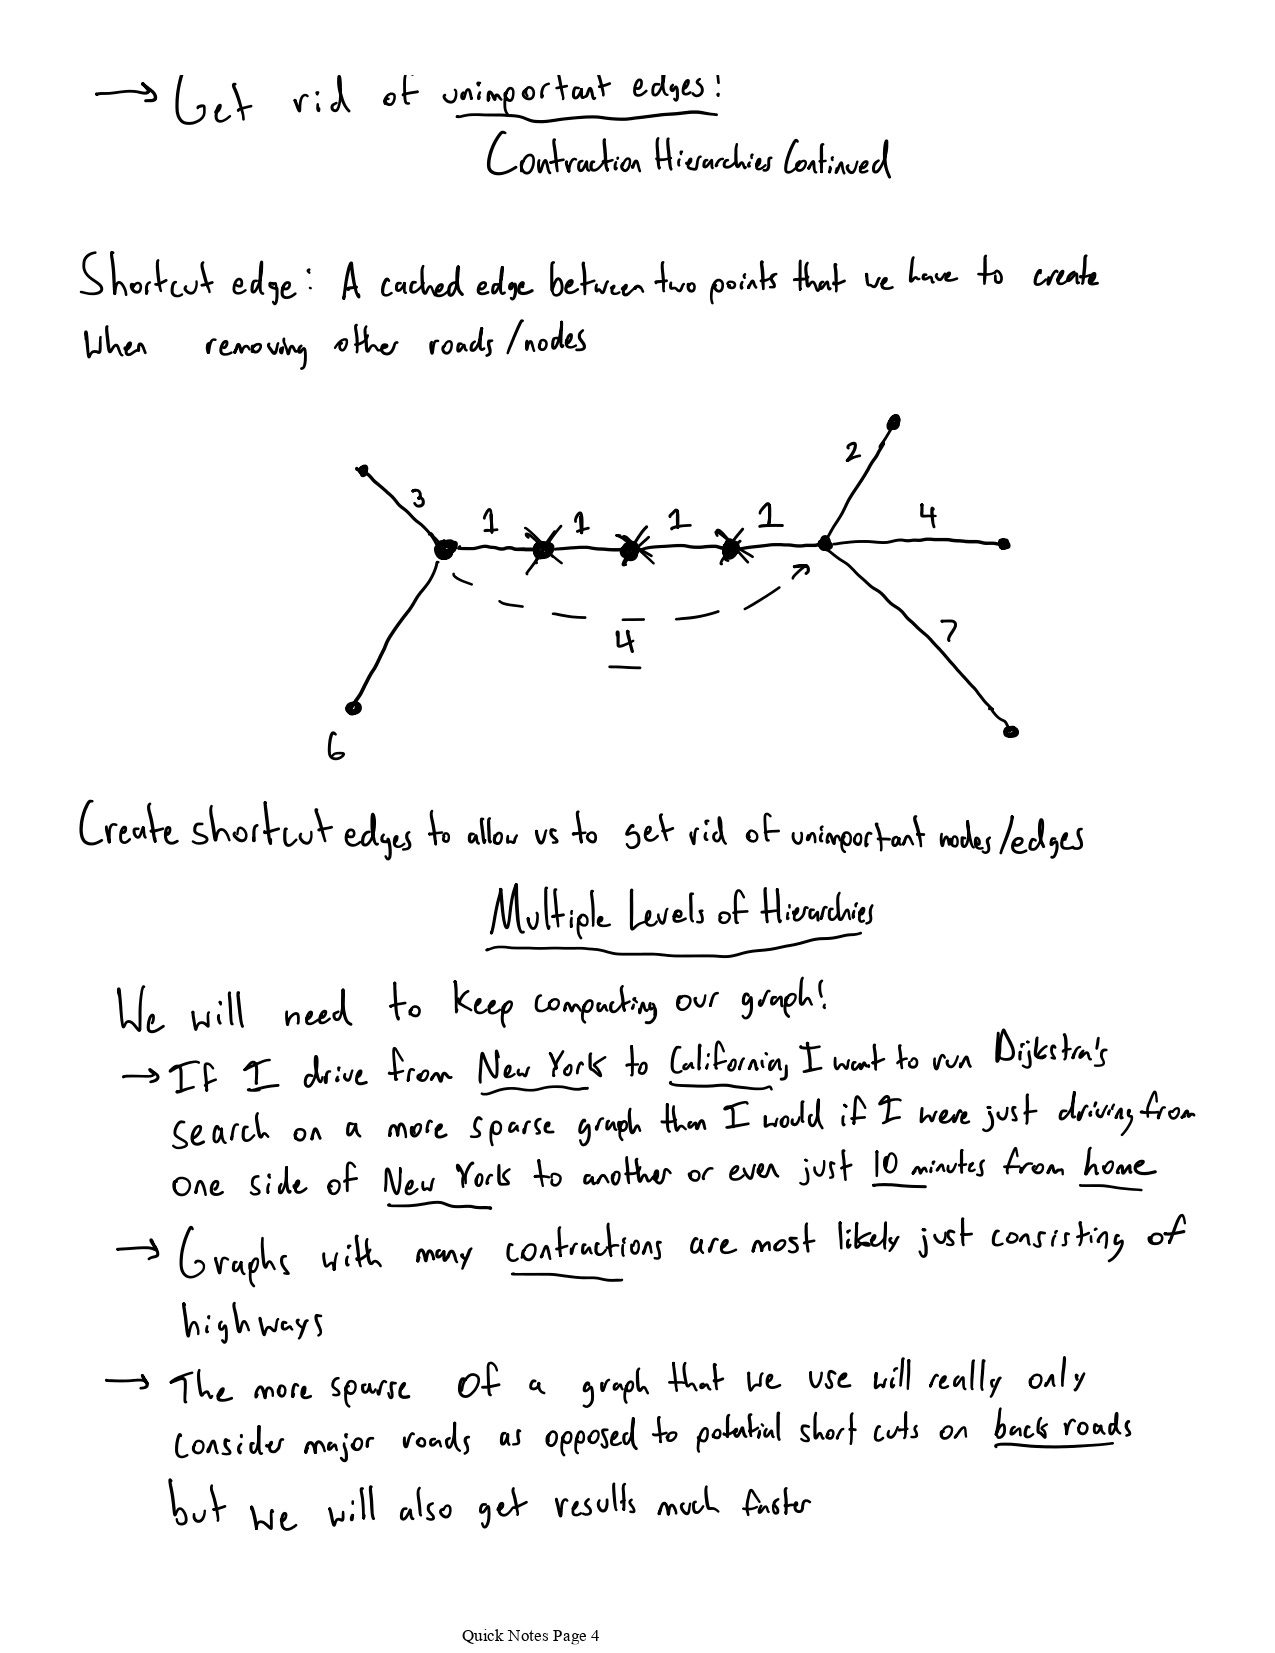 → Get rid of unimportant edges!
Contraction Hierarchies Continued
Shortcut edge: A cached edge between two points that we have to create
when removing other roads/nodes
2
3
1 1 1 1
4
4
7
6
Create shortcut edges to allow us to get rid of unimportant nodes/edges
Multiple Levels of Hierarchies
We will need to keep compacting our graph!
→ If I drive from New York to California, I want to run Dijkstra's
search on a more sparse graph than I would if I were just driving from
one side of New York to another or even just 10 minutes from home
→ Graphs with many contractions are most likely just consisting of
highways
→ The more sparse Of a graph that we use will really only
consider major roads as opposed to potential short cuts on back roads
but we will also get results much faster
Quick Notes Page 4